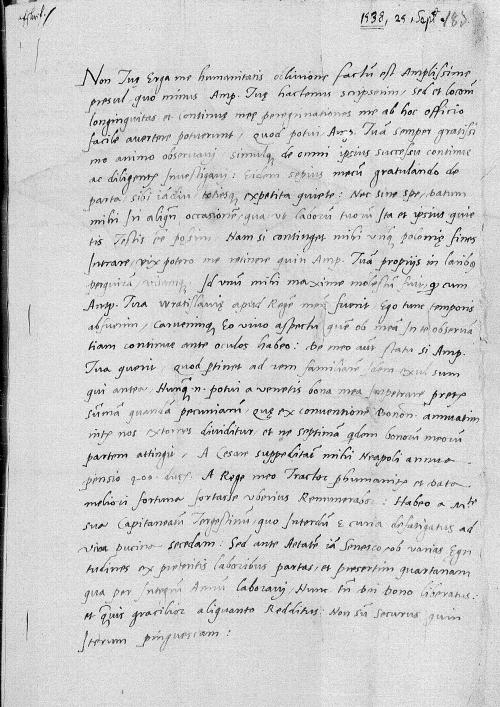 1538, 29, Sept.
183
Non Tuę Erga me humanitatis oblivione factū est Amplissime
presul, quo minus Amp. Tuę hactenus scripserim, sed et locorū
longinquitas et continuę meę peregrinationes me ab hoc officio
facile avertere potuerunt, Quod potui, Amp. Tuā semper gratissi
mo animo observavi simulq de omni ipsius successu continue
ac diligenter Investigavi: Eidem sepius mecū gratulando de
parta sibi totiesq expetita quiete: Nec sine spe, datum
mihi In aliqn occasionē, qua ut laborū tuorū Ita et ipsius quie
tis Testis eē possim, Nam si continget mihi unq polonię fines
Intrare, vix potero me retinere quin Amp. Tuā propriis in laribus
perquirā, Id unū mihi maxime molestū fuit, q cum
Amp. Tua Wratislavię apud Regē meū fuerit Ego tunc temporis
abfuerim, Caruerimq eo vivo aspectu quē ob meā In te observā
tiam continue ante oculos habeo: De meo autē statu si Amp.
Tua querit, quod ptinet ad rem familiarē, idem sum
qui antea, Nunq n. potui a venetis bona mea Impetrare preter
sūmā quandā pecuniarū, quę ex conventione Bonon. annuatim
inter nos extorres dividitur et ne septimā qdem bonorū meorū
partem attingit, A Cesare suppeditatur mihi Neapoli annua
pensio duc. A Rege meo Tractor phumanitr et data
meliori fortuna fortasse uberius Remunerabor: Habeo a Mte
sua Capitaneatū Tergestinū, quo Interdū e curia defatigatus ad
viva pucina secedam: Sed ante Aetatē iā Senesco, ob varias Egri
tudines ex preteritis laboribus partas, et presertim quartanam
qua per Integrū Annū laboravi, Nunc tn dei dono liberatus:
et qvis gracilior aliquanto Redditus: Non sū securus quin
Iterum pinguescam: